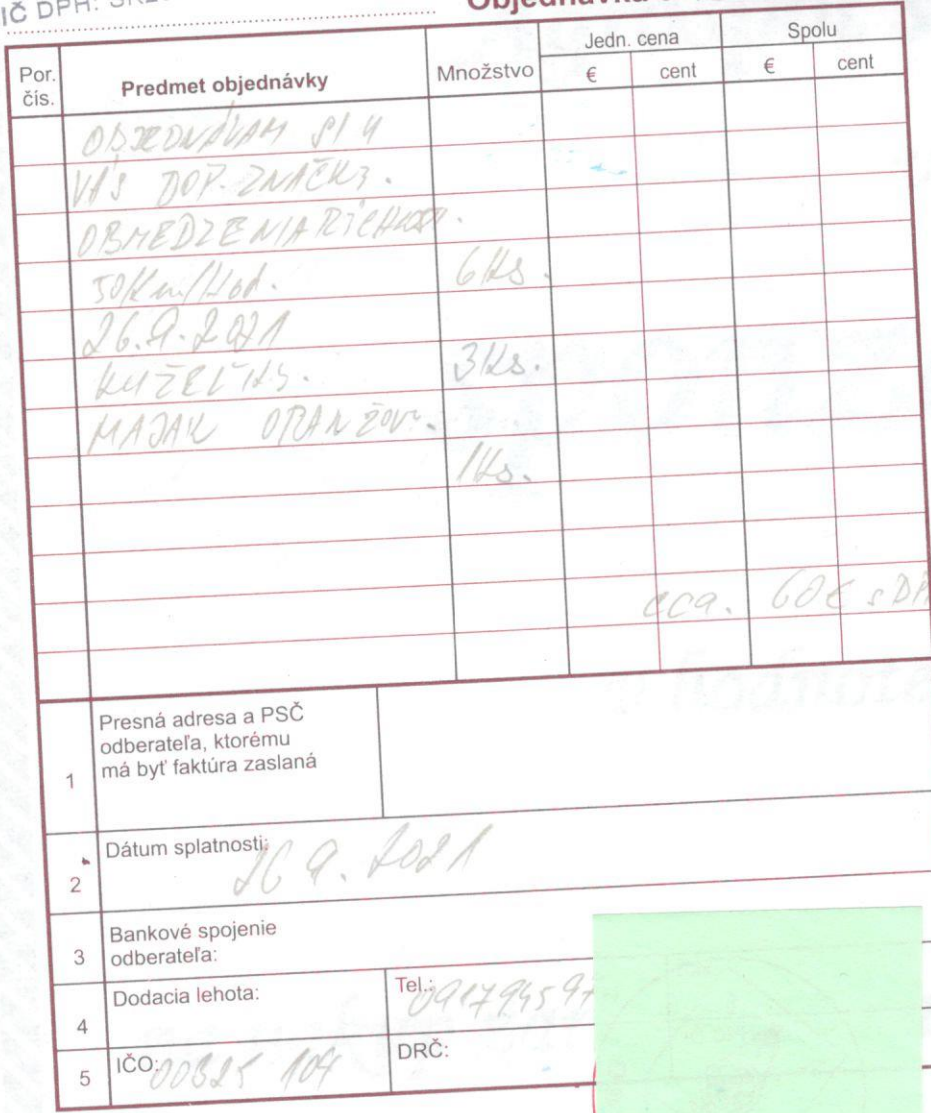 IČ DPH:
Objednávka
Por. čís. Predmet objednávky Množstvo Jedn. cena Spolu
€ cent € cent
OBJEDNÁVAM SI U
VÁS DOP. ZNAČKY.
OBMEDZENIA
50Km/Hod. 6Ks.
26.9.2021
KUŽEĽKY. 3Ks.
MAJAK ORANŽOV.
1Ks.
cca. 60€ s DPH
Presná adresa a PSČ
odberateľa, ktorému
1 má byť faktúra zaslaná
2 Dátum splatnosti: 26 9. 2021
Bankové spojenie
3 odberateľa:
4 Dodacia lehota: Tel.:
5 IČO: 00325 DRČ: